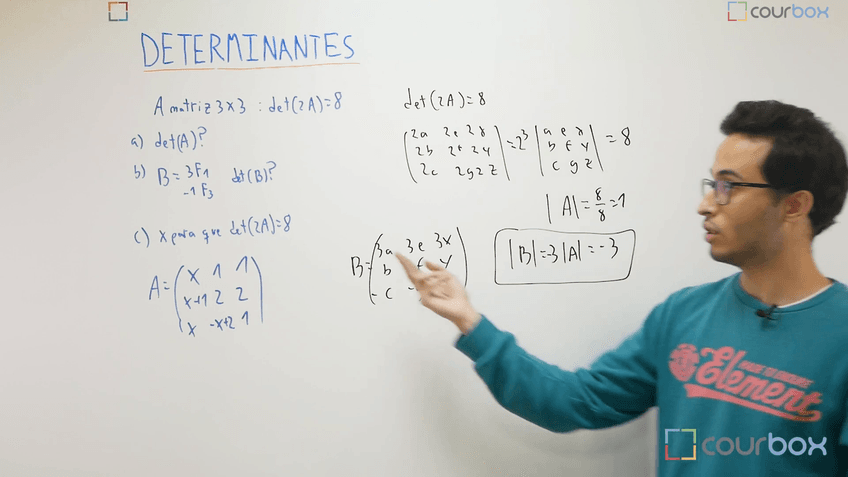 courbox
DETERMINANTES
A matriz 3x3 : det(2A)=8
a) det(A)?
b) B = 3F1 det(B)?
-1F3
c) x para que det(2A)=8
A = ( x 1 1
x+1 2 2
x -x+2 1 )
det(2A)=8
( 2a 2e 2x
2b 2f 2y
2c 2g 2z ) = 2³ | a e x
b f y
c g z | = 8
|A| = 8/8 = 1
B = ( 3a 3e 3x
b f y
-c - )
|B| = -3|A| = -3
Element
courbox